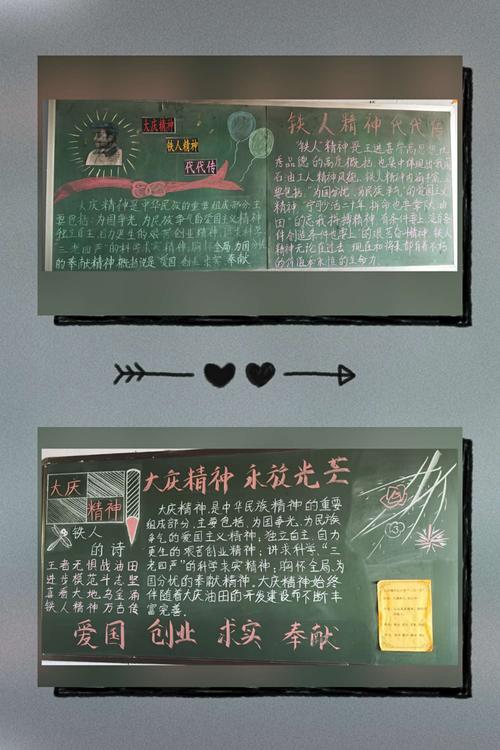 大庆精神
铁人精神
代代传
大庆精神是中华民族精神的重要组成部分主
要包括:为国争光、为民族争气的爱国主义精神
独立自主自力更生的艰苦创业精神,讲求科学
"三老四严"的科学求实精神,胸怀全局为国分忧
的奉献精神概括说是 爱国 创业 求实 奉献
铁人精神代代传
"铁人"精神是王进喜崇高思想优
秀品德的高度概括,也集中体现出我国
石油工人精神风貌。铁人精神内涵丰富,主
要包括:"为国分忧、为民族争气"的爱国主义
精神,"宁可少活二十年,拼命也要拿下大油
田"的忘我拼搏精神,有条件要上,没有条
件创造条件也要上"的艰苦奋斗精神。铁人
精神无论在过去、现在和将来都有着不朽
的价值和永恒的生命力
大庆
精神
铁人
的诗
王者无惧战油田
进步模范斗志坚
喜看大地乌金涌
铁人精神万古传
大庆精神 永放光芒
大庆精神是中华民族精神的重要
组成部分,主要包括:为国争光、为民族
争气的爱国主义精神;独立自主、自力
更生的艰苦创业精神;讲求科学、"三
老四严"的科学求实精神;胸怀全局、为
国分忧的奉献精神。大庆精神始终
伴随着大庆油田的开发建设而不断丰
富完善。
爱国 创业 求实 奉献